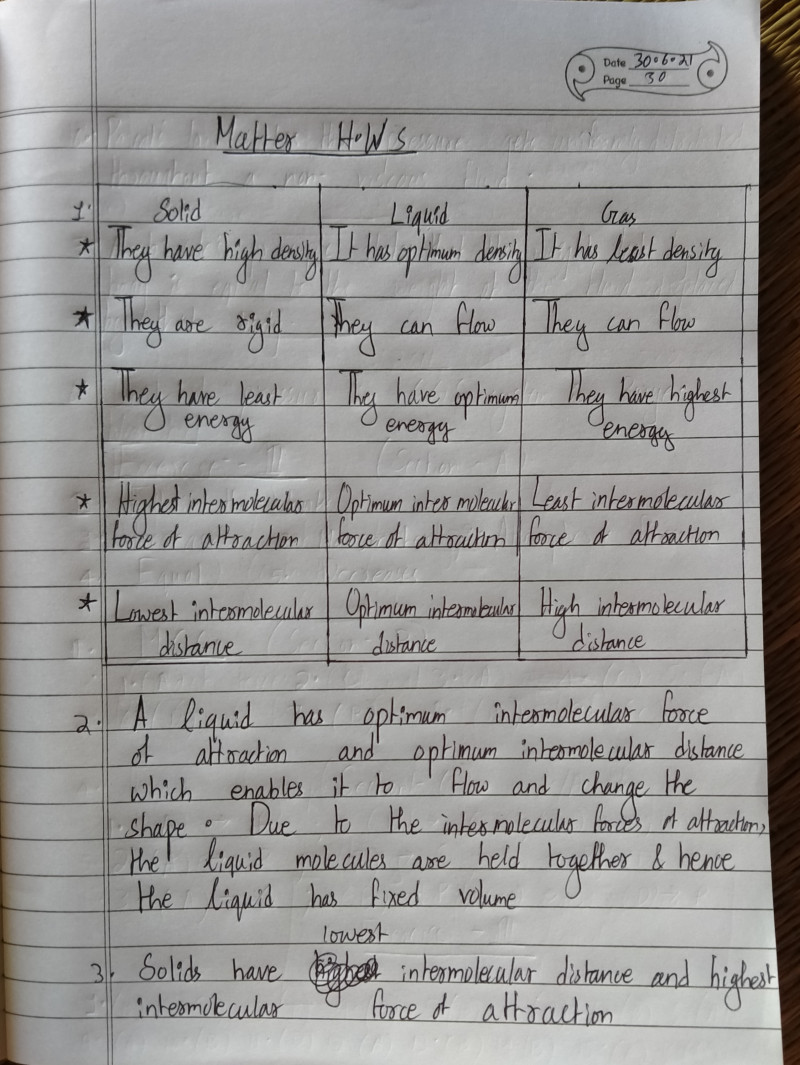 Date 30.6.21
Page 30
Matter H.W s
1. Solid Liquid Gas
* They have high density It has optimum density It has least density
* They are rigid They can flow They can flow
* They have least They have optimum They have highest
energy energy energy
* Highest intermolecular Optimum intermolecular Least intermolecular
force of attraction force of attraction force of attraction
* Lowest intermolecular Optimum intermolecular High intermolecular
distance distance distance
2. A liquid has optimum intermolecular force
of attraction and optimum intermolecular distance
which enables it to flow and change the
shape. Due to the intermolecular forces of attraction,
the liquid molecules are held together & hence
the liquid has fixed volume
lowest
3. Solids have intermolecular distance and highest
intermolecular force of attraction